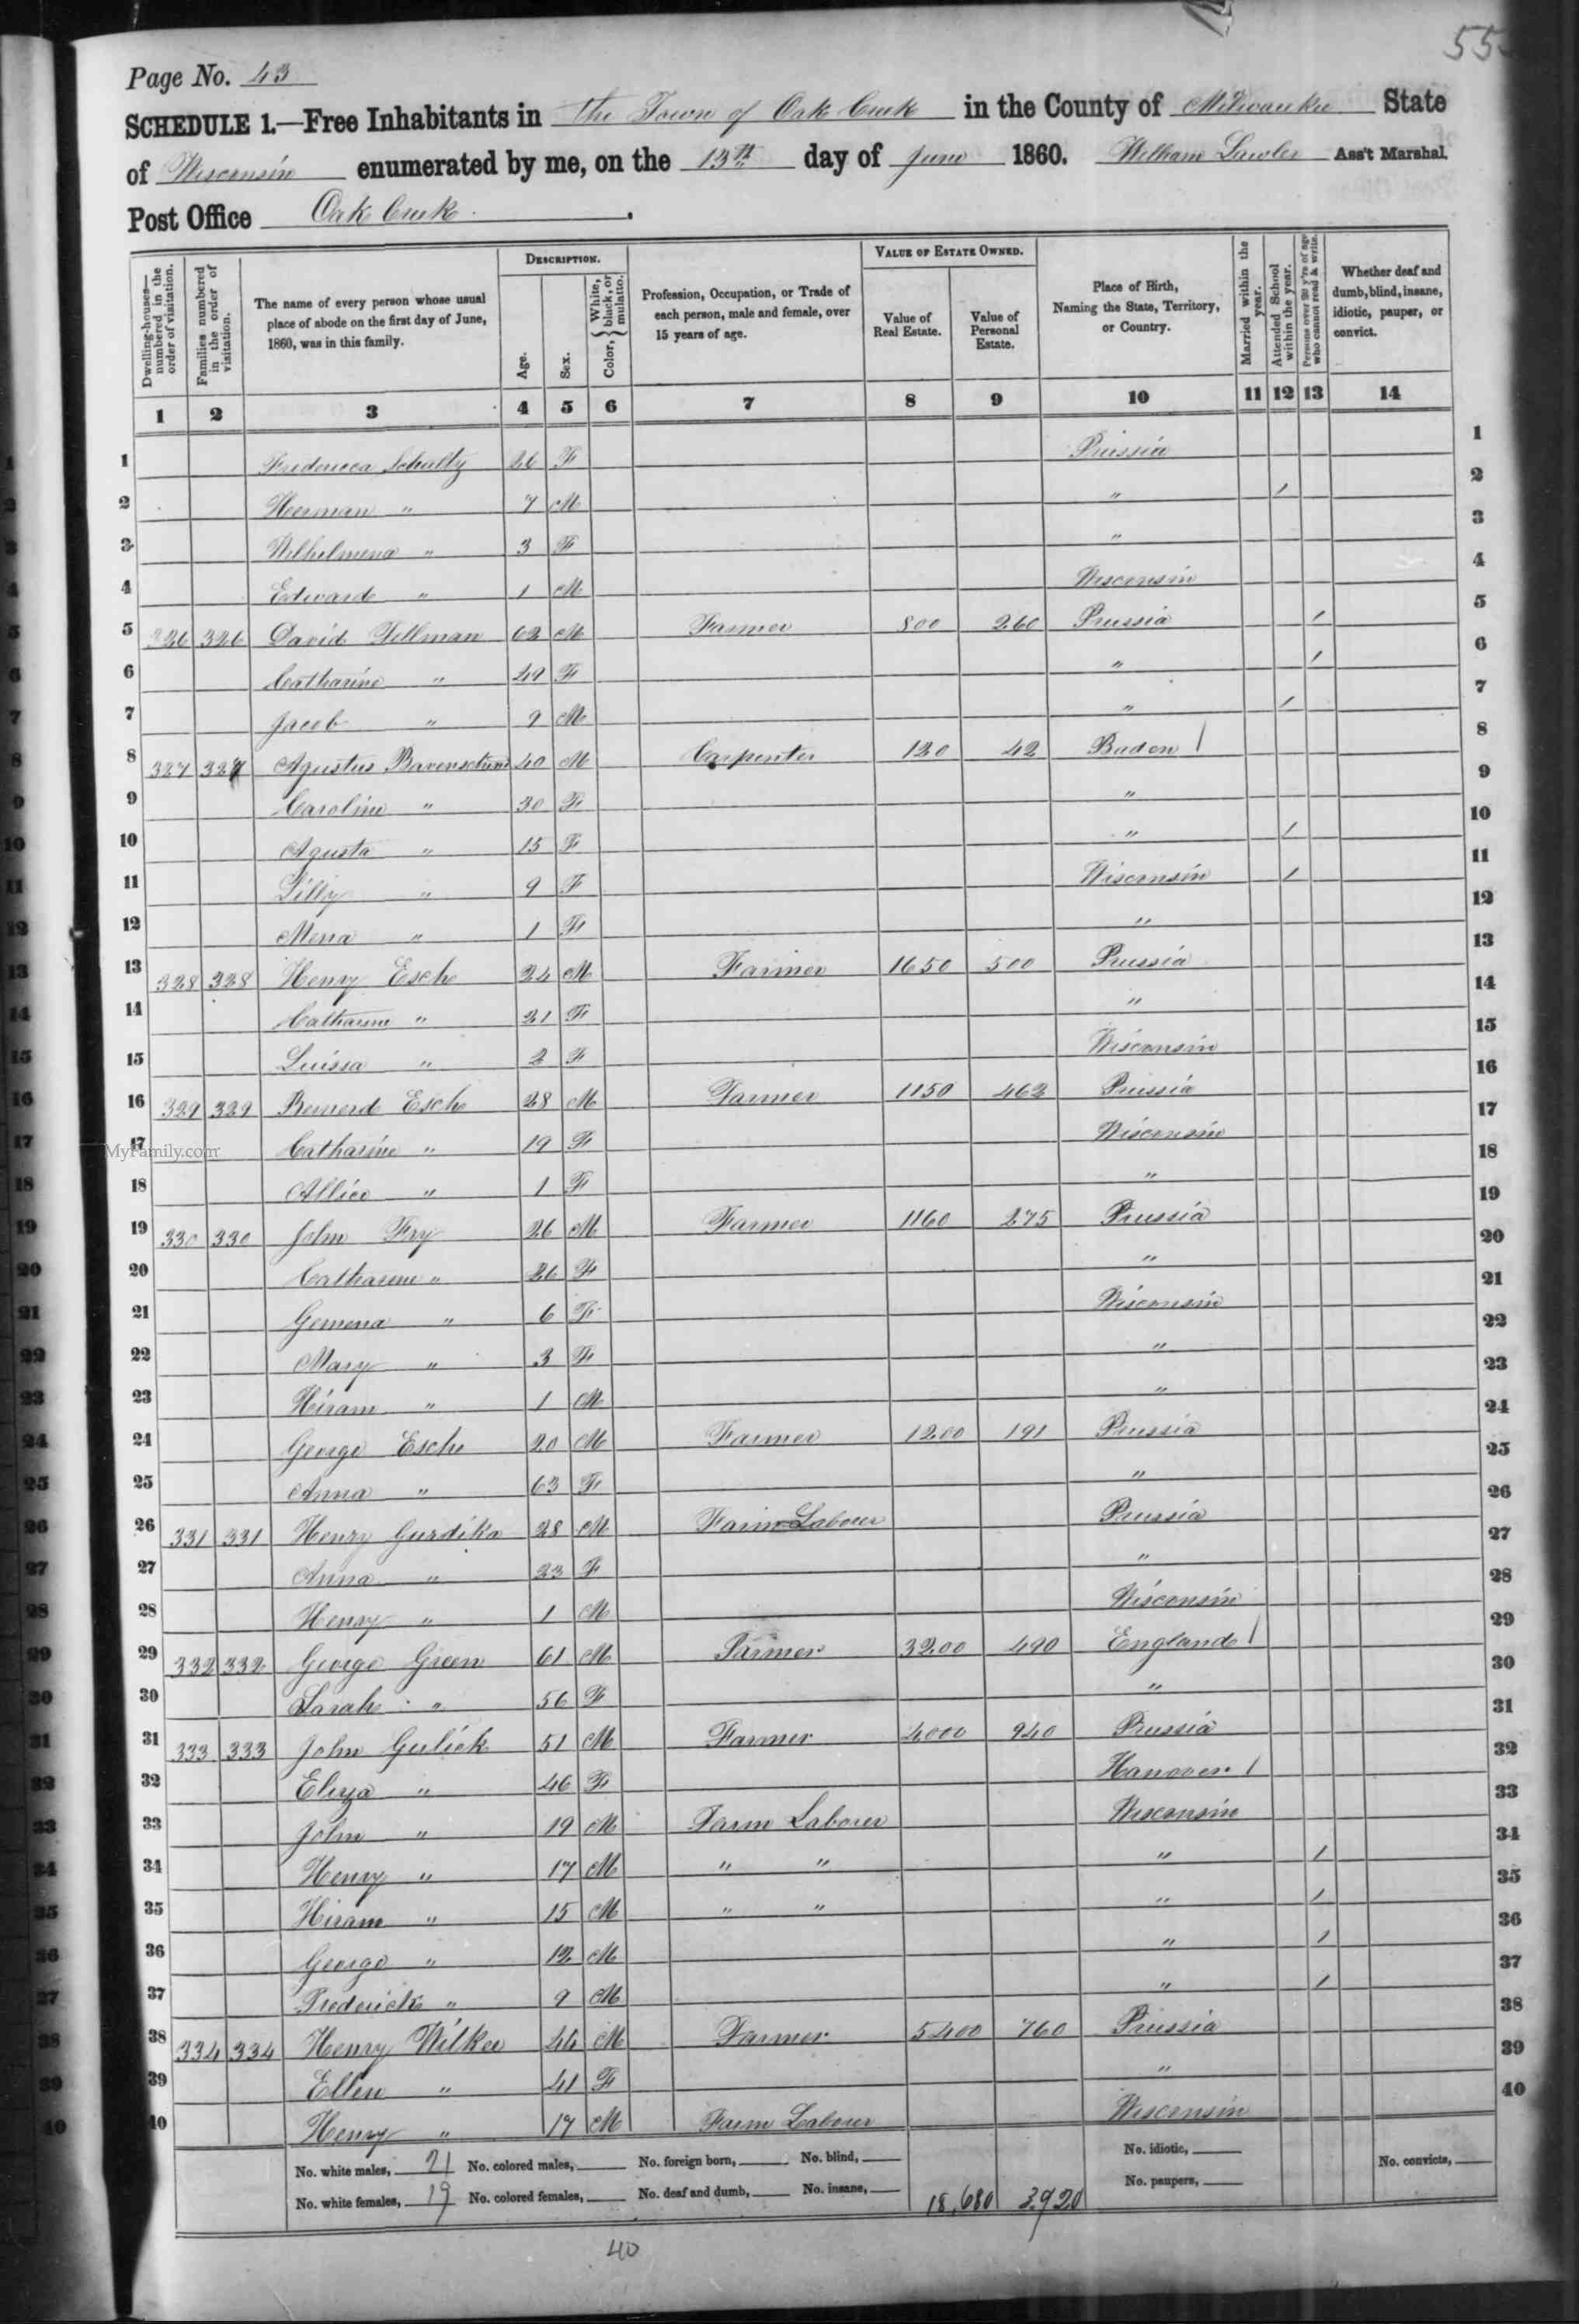 55
Page No. 43
SCHEDULE 1.—Free Inhabitants in the Town of Oak Creek in the County of Milwaukee State
of Wisconsin enumerated by me, on the 13th day of June 1860. William Lawler Ass't Marshal.
Post Office Oak Creek.
Dwelling-houses—numbered in the order of visitation.
Families numbered in the order of visitation.
The name of every person whose usual place of abode on the first day of June, 1860, was in this family.
DESCRIPTION.
Age.
Sex.
Color, { White, black, or mulatto.
Profession, Occupation, or Trade of each person, male and female, over 15 years of age.
VALUE OF ESTATE OWNED.
Value of Real Estate.
Value of Personal Estate.
Place of Birth, Naming the State, Territory, or Country.
Married within the year.
Attended School within the year.
Persons over 20 y'rs of age who cannot read & write.
Whether deaf and dumb, blind, insane, idiotic, pauper, or convict.
1 2 3 4 5 6 7 8 9 10 11 12 13 14
1 Fredericca Schultz 26 F Prussia 1
2 Herman " 7 M " / 2
3 Wilhelmena " 3 F " 3
4 Edward " 1 M Wisconsin 4
5 326 326 David Tillman 62 M Farmer 800 260 Prussia / 5
6 Catharine " 49 F " / 6
7 Jacob " 9 M " / 7
8 327 327 Agustus 40 M Carpenter 120 42 Baden / 8
9 Caroline " 30 F " 9
10 Agusta " 15 F " / 10
11 Lilly " 9 F Wisconsin / 11
12 Mena " 1 F " 12
13 328 328 Henry Esche 24 M Farmer 1650 500 Prussia 13
14 Catharine " 21 F " 14
15 Luissa " 2 F Wisconsin 15
16 329 329 Bernerd Esche 28 M Farmer 1150 462 Prussia 16
17 Catharine " 19 F Wisconsin 17
MyFamily.com
18 Allice " 1 F " 18
19 330 330 John Fry 26 M Farmer 1160 275 Prussia 19
20 Catharine " 26 F " 20
21 Gemena " 6 F Wisconsin 21
22 Mary " 3 F " 22
23 Hiram " 1 M " 23
24 George Esche 20 M Farmer 1200 191 Prussia 24
25 Anna " 63 F " 25
26 331 331 Henry Gurdika 28 M Farm Laborer Prussia 26
27 Anna " 23 F " 27
28 Henry " 1 M Wisconsin 28
29 332 332 George Green 61 M Farmer 3200 490 England / 29
30 Sarah " 56 F " 30
31 333 333 John Gulick 51 M Farmer 4000 940 Prussia 31
32 Eliza " 46 F Hanover / 32
33 John " 19 M Farm Laborer Wisconsin 33
34 Henry " 17 M " " " / 34
35 Hiram " 15 M " " " / 35
36 George " 12 M " / 36
37 Frederick " 9 M " / 37
38 334 334 Henry Wilke 44 M Farmer 5400 760 Prussia 38
39 Ellen " 41 F " 39
40 Henry " 17 M Farm Laborer Wisconsin 40
No. white males, 21 No. colored males, No. foreign born, No. blind, No. idiotic, No. convicts,
No. white females, 19 No. colored females, No. deaf and dumb, No. insane, 18,680 3,920 No. paupers,
40